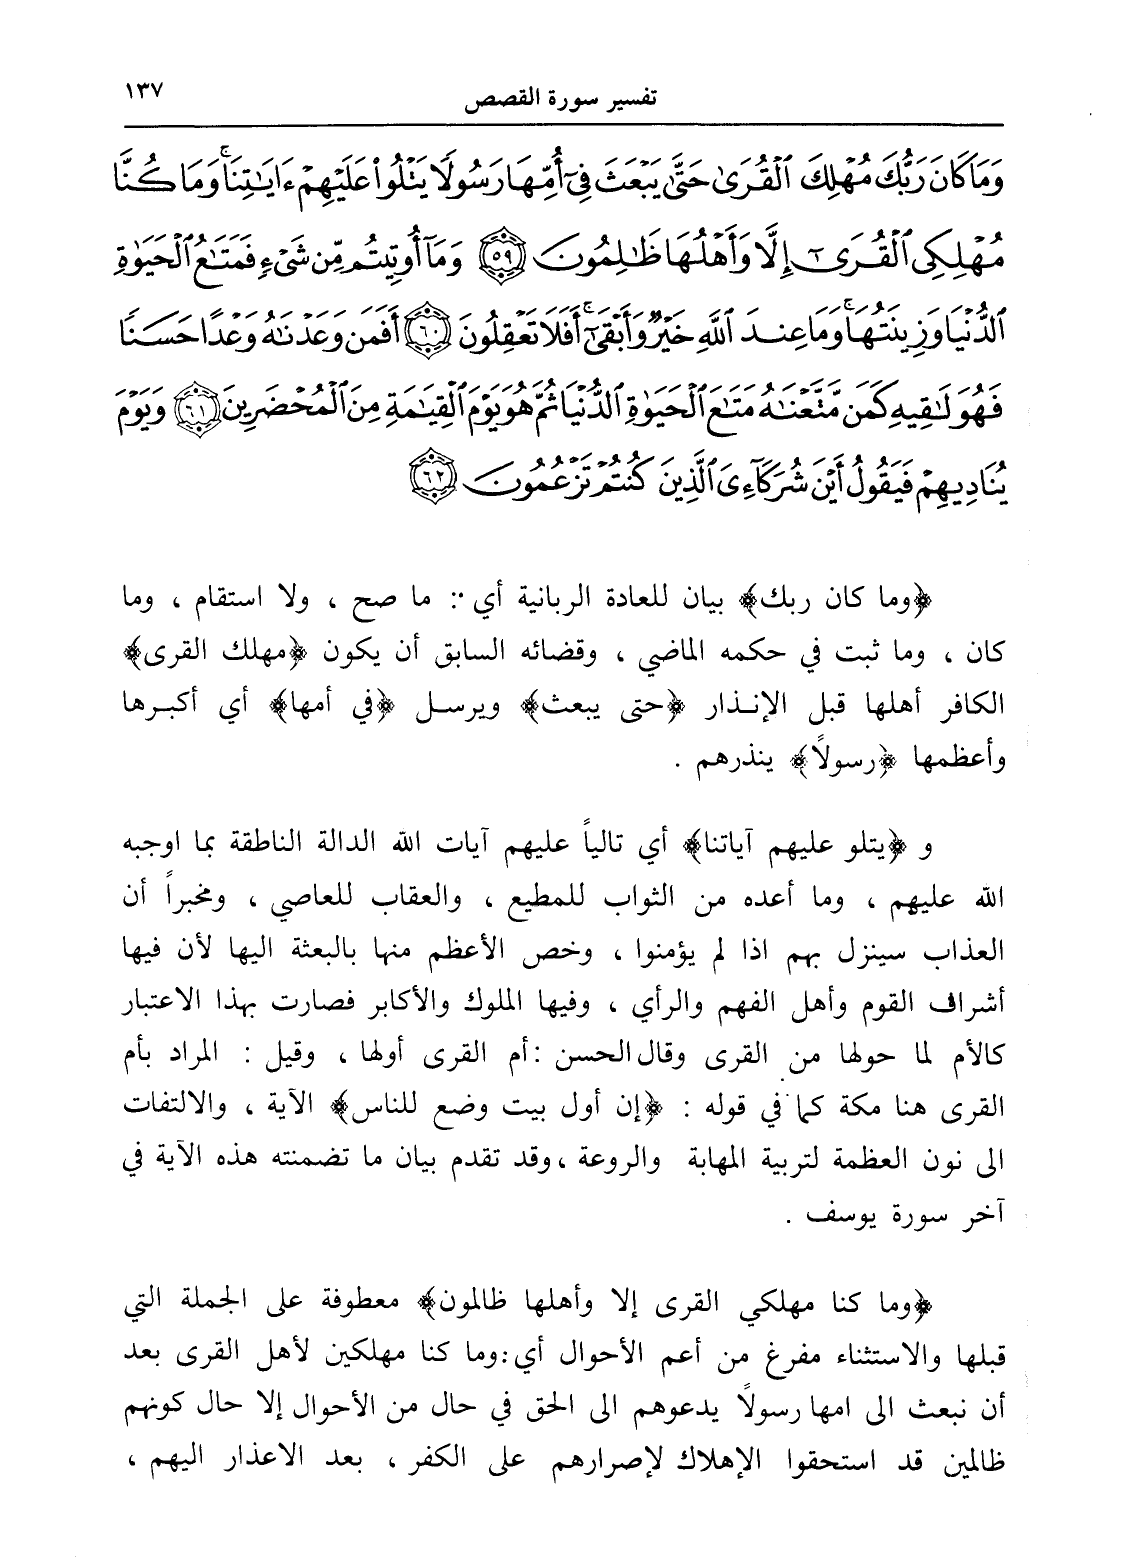 تفسير سورة القصص ١٣٧
وَمَا كَانَ رَبُّكَ مُهْلِكَ ٱلْقُرَىٰ حَتَّىٰ يَبْعَثَ فِىٓ أُمِّهَا رَسُولًا يَتْلُوا۟ عَلَيْهِمْ ءَايَٰتِنَا ۚ وَمَا كُنَّا
مُهْلِكِى ٱلْقُرَىٰٓ إِلَّا وَأَهْلُهَا ظَٰلِمُونَ ٥٩ وَمَآ أُوتِيتُم مِّن شَىْءٍ فَمَتَٰعُ ٱلْحَيَوٰةِ
ٱلدُّنْيَا وَزِينَتُهَا ۚ وَمَا عِندَ ٱللَّهِ خَيْرٌ وَأَبْقَىٰٓ ۚ أَفَلَا تَعْقِلُونَ ٦٠ أَفَمَن وَعَدْنَٰهُ وَعْدًا حَسَنًا
فَهُوَ لَٰقِيهِ كَمَن مَّتَّعْنَٰهُ مَتَٰعَ ٱلْحَيَوٰةِ ٱلدُّنْيَا ثُمَّ هُوَ يَوْمَ ٱلْقِيَٰمَةِ مِنَ ٱلْمُحْضَرِينَ ٦١ وَيَوْمَ
يُنَادِيهِمْ فَيَقُولُ أَيْنَ شُرَكَآءِىَ ٱلَّذِينَ كُنتُمْ تَزْعُمُونَ ٦٢
﴿وما كان ربك﴾ بيان للعادة الربانية أي : ما صح ، ولا استقام ، وما
كان ، وما ثبت في حكمه الماضي ، وقضائه السابق أن يكون ﴿مهلك القرى﴾
الكافر أهلها قبل الإنذار ﴿حتى يبعث﴾ ويرسل ﴿في أمها﴾ أي أكبرها
وأعظمها ﴿رسولاً﴾ ينذرهم .
و ﴿يتلو عليهم آياتنا﴾ أي تالياً عليهم آيات الله الدالة الناطقة بما اوجبه
الله عليهم ، وما أعده من الثواب للمطيع ، والعقاب للعاصي ، ومخبراً أن
العذاب سينزل بهم اذا لم يؤمنوا ، وخص الأعظم منها بالبعثة اليها لأن فيها
أشراف القوم وأهل الفهم والرأي ، وفيها الملوك والأكابر فصارت بهذا الاعتبار
كالأم لما حولها من القرى وقال الحسن : أم القرى أولها ، وقيل : المراد بأم
القرى هنا مكة كما في قوله : ﴿إن أول بيت وضع للناس﴾ الآية ، والالتفات
الى نون العظمة لتربية المهابة والروعة ، وقد تقدم بيان ما تضمنته هذه الآية في
آخر سورة يوسف .
﴿وما كنا مهلكي القرى إلا وأهلها ظالمون﴾ معطوفة على الجملة التي
قبلها والاستثناء مفرغ من أعم الأحوال أي : وما كنا مهلكين لأهل القرى بعد
أن نبعث الى امها رسولاً يدعوهم الى الحق في حال من الأحوال إلا حال كونهم
ظالمين قد استحقوا الإهلاك لإصرارهم على الكفر ، بعد الاعذار اليهم ،